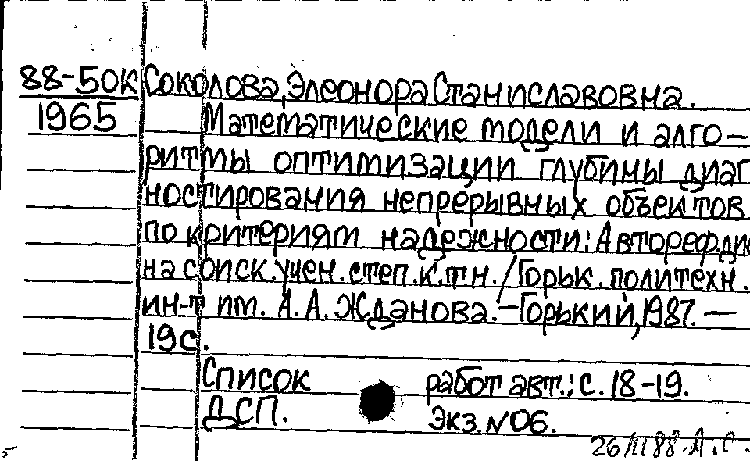 88-50к Соколова, Элеонора Станиславовна.
1965 Математические модели и алго-
ритмы оптимизации глубины диаг
ностирования непрерывных объектов
по критериям надежности: Автореф. дис
на соиск. учен. степ. к.т.н. / Горьк. политехн.
ин-т им. А. А. Жданова. — Горький, 1987. —
19 с.
Список работ авт.: с. 18-19.
ДСП. Экз. № 06.